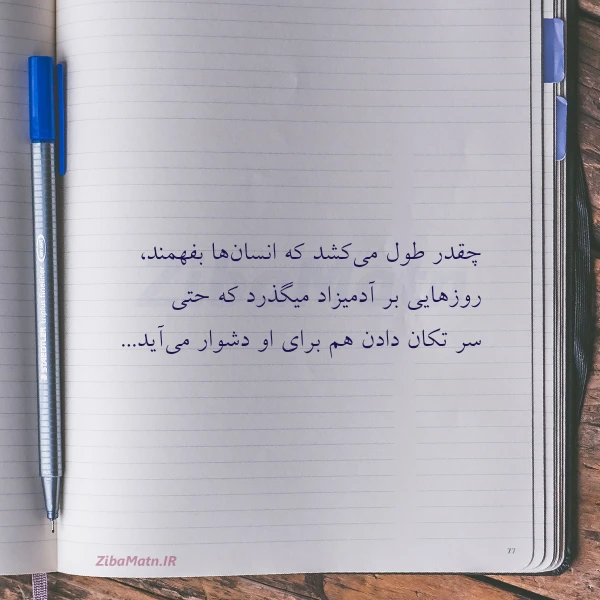 چقدر طول می‌کشد که انسان‌ها بفهمند،
روزهایی بر آدمیزاد میگذرد که حتی
سر تکان دادن هم برای او دشوار می‌آید...
ZibaMatn.IR